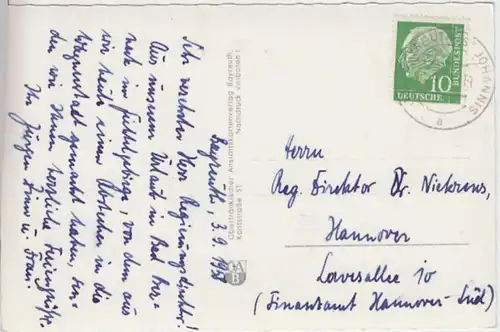 Bayreuth, 3.9.1958
Sehr verehrter Herr Regierungsdirektor!
Aus unserem Urlaub in Bad Ber-
neck im Fichtelgebirge, von dem aus
wir heute einen Abstecher in die
Wagnerstadt gemacht haben, sen-
den wir Ihnen herzliche Feriengrüße.
Ihr Jürgen u. Frau.
Oberfränkischer Ansichtskartenverlag Bayreuth,
Karlstraße 51
Nachdruck verboten!
10
DEUTSCHE
BUNDESPOST
JOHANNIS
a
Herrn
Reg. Direktor Dr.
Hannover
Lavesallee 10
(Finanzamt Hannover-Süd)